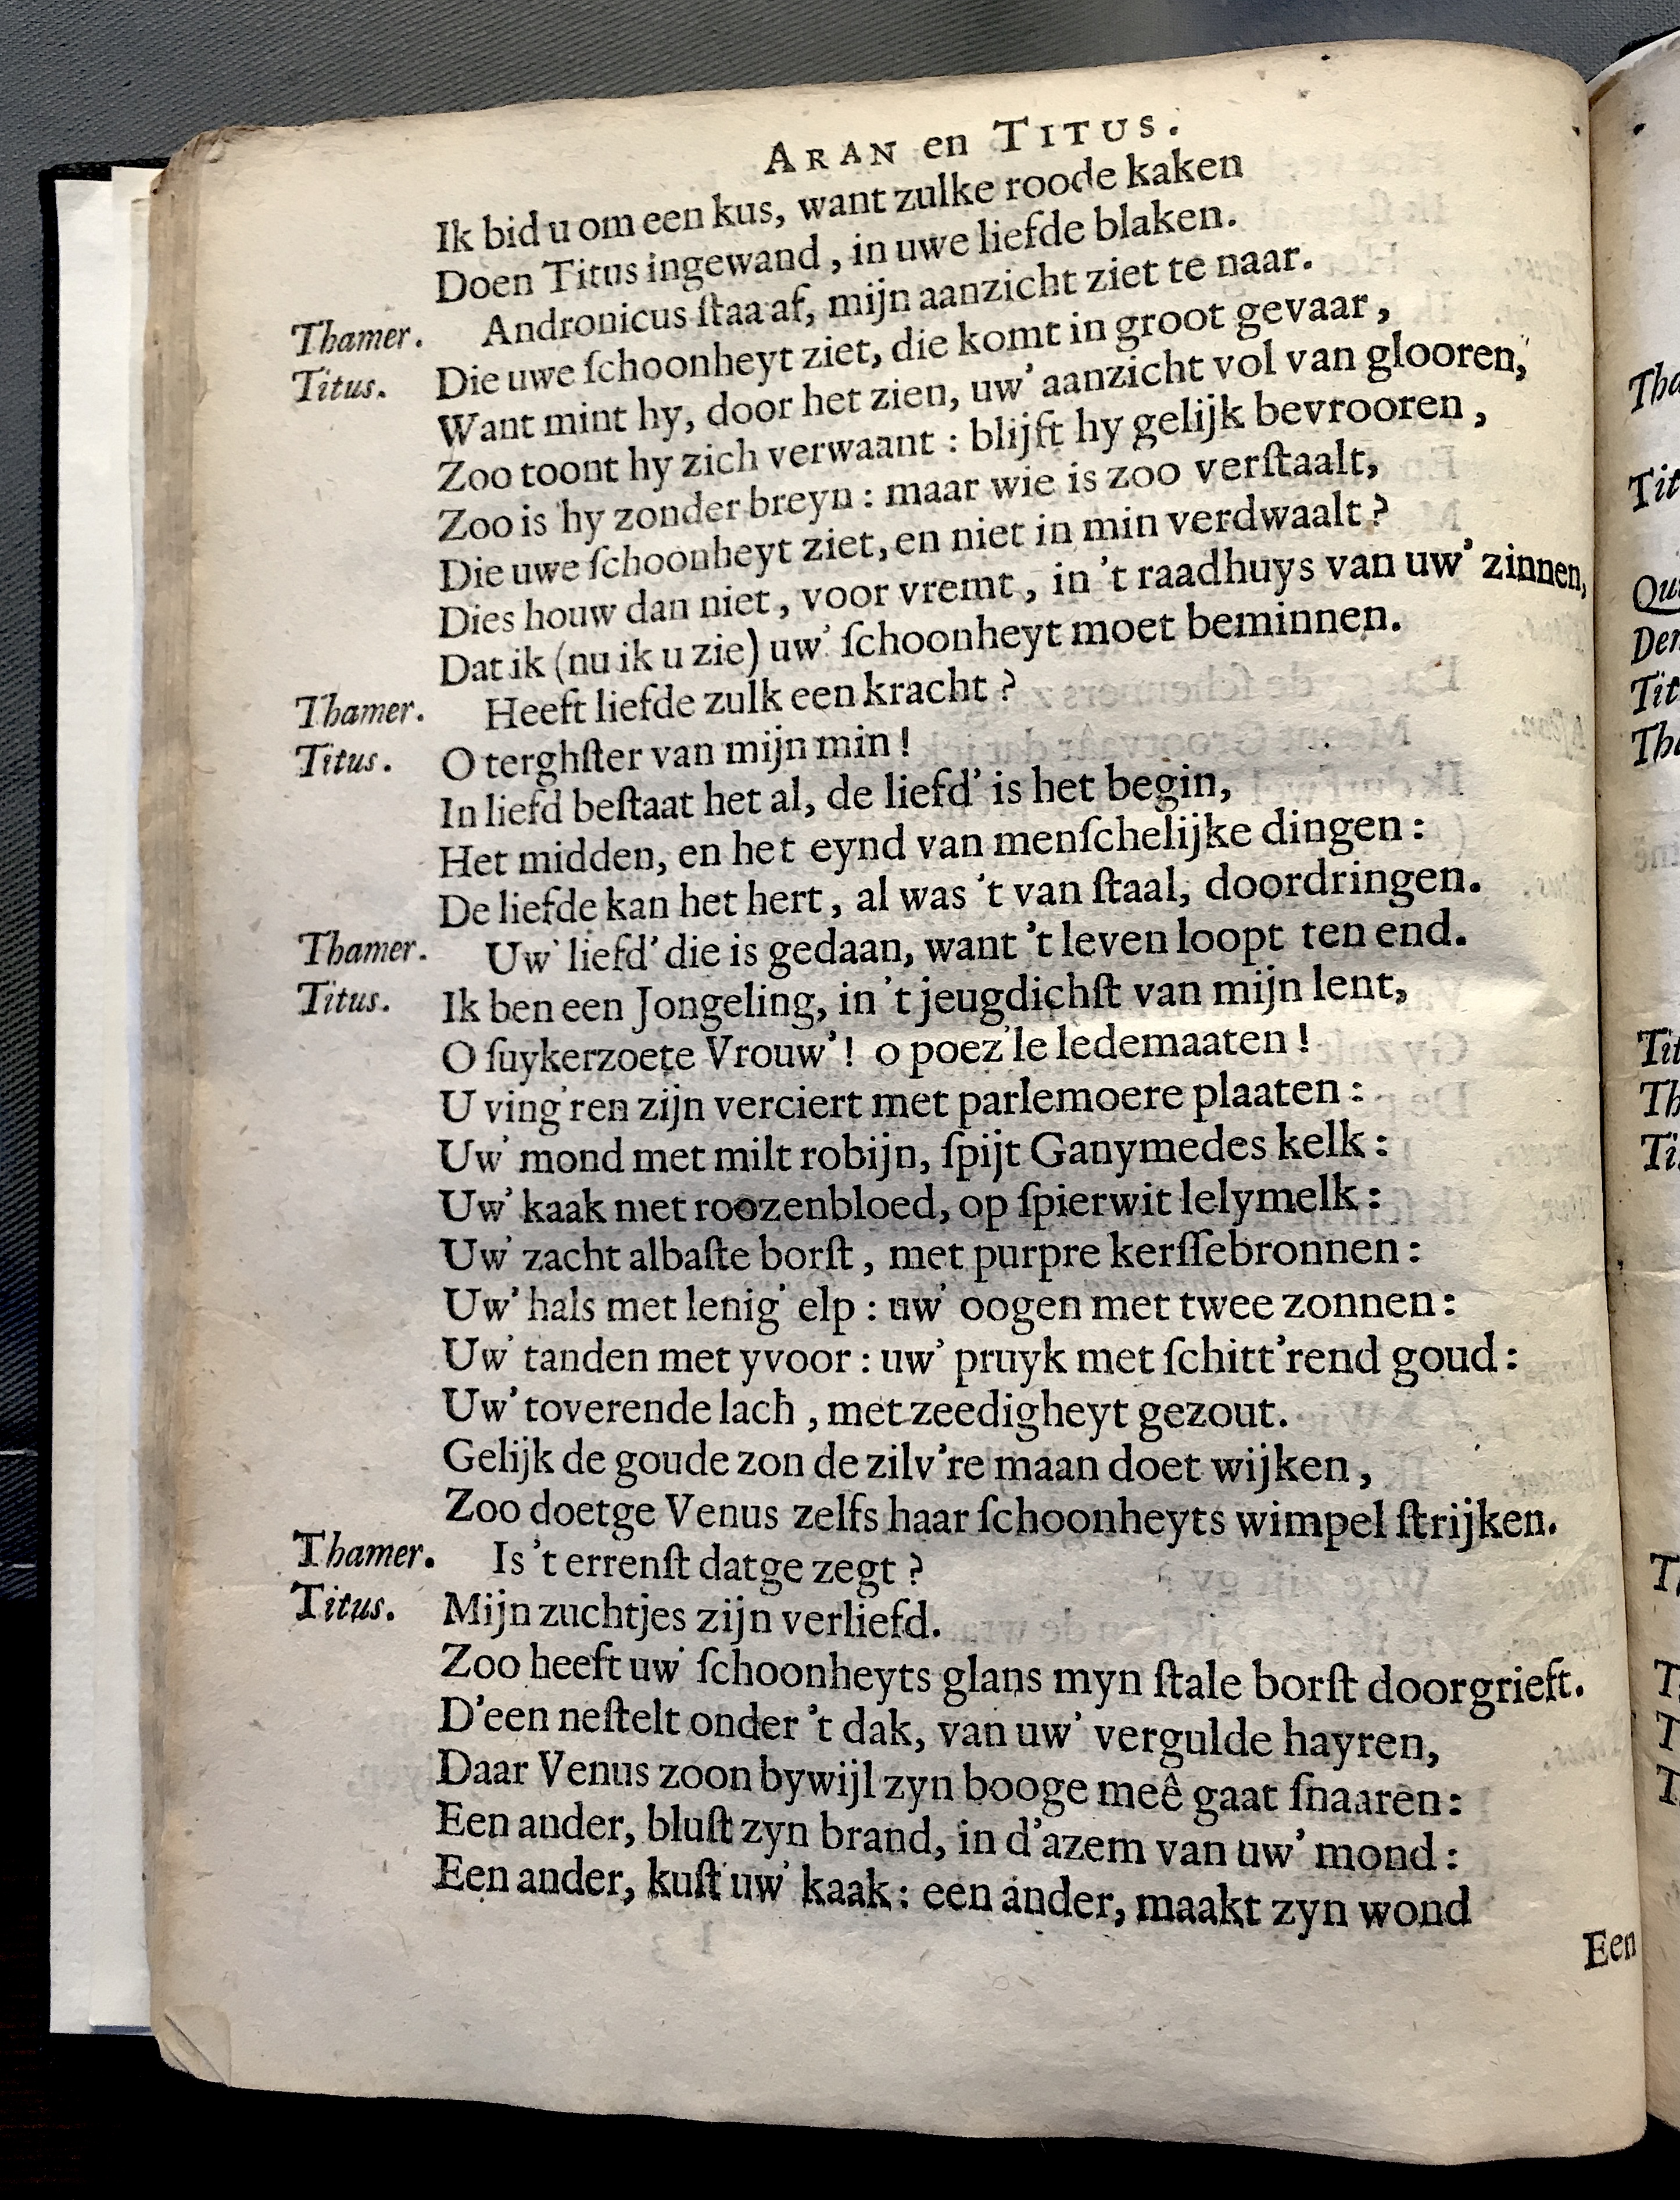 ARAN en TITUS.
Ik bid u om een kus, want zulke roode kaken
Doen Titus ingewand, in uwe liefde blaken.
Thamer. Andronicus ſtaa af, mijn aanzicht ziet te naar.
Titus. Die uwe ſchoonheyt ziet, die komt in groot gevaar,
Want mint hy, door het zien, uw' aanzicht vol van glooren,
Zoo toont hy zich verwaant: blijft hy gelijk bevrooren,
Zoo is hy zonder breyn: maar wie is zoo verſtaalt,
Die uwe ſchoonheyt ziet, en niet in min verdwaalt?
Dies houw dan niet, voor vremt, in 't raadhuys van uw' zinnen,
Dat ik (nu ik u zie) uw' ſchoonheyt moet beminnen.
Thamer. Heeft liefde zulk een kracht?
Titus. O terghſter van mijn min!
In liefd beſtaat het al, de liefd' is het begin,
Het midden, en het eynd van menſchelijke dingen:
De liefde kan het hert, al was 't van ſtaal, doordringen.
Thamer. Uw' liefd' die is gedaan, want 't leven loopt ten end.
Titus. Ik ben een Jongeling, in 't jeugdichſt van mijn lent,
O ſuykerzoete Vrouw'! o poez'le ledemaaten!
U ving'ren zijn verciert met parlemoere plaaten:
Uw' mond met milt robijn, ſpijt Ganymedes kelk:
Uw' kaak met roozenbloed, op ſpierwit lelymelk:
Uw' zacht albaſte borſt, met purpre kerſſebronnen:
Uw' hals met lenig' elp: uw' oogen met twee zonnen:
Uw' tanden met yvoor: uw' pruyk met ſchitt'rend goud:
Uw' toverende lach, met zeedigheyt gezout.
Gelijk de goude zon de zilv're maan doet wijken,
Zoo doetge Venus zelfs haar ſchoonheyts wimpel ſtrijken.
Thamer. Is 't errenſt datge zegt?
Titus. Mijn zuchtjes zijn verliefd.
Zoo heeft uw' ſchoonheyts glans myn ſtale borſt doorgrieft.
D'een neſtelt onder 't dak, van uw' vergulde hayren,
Daar Venus zoon bywijl zyn booge meê gaat ſnaaren:
Een ander, bluſt zyn brand, in d'azem van uw' mond:
Een ander, kuſt uw' kaak: een ander, maakt zyn wond
Een